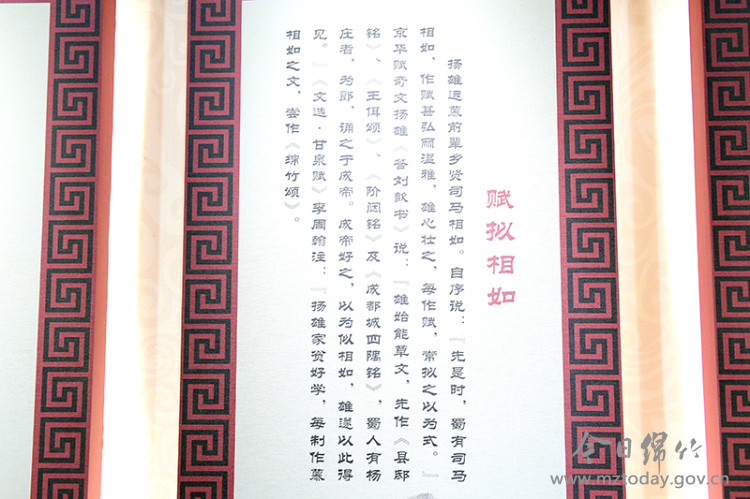 赋拟相如
扬雄远慕前辈乡贤司马相如。自序说：『先是时，蜀有司马
相如，作赋甚弘丽温雅，雄心壮之，每作赋，常拟之以为式。』
京华赋奇文扬雄《答刘歆书》说：『雄始能草文，先作《县邸
铭》、《王佴颂》、《阶闼铭》及《成都城四隅铭》，蜀人有杨
庄者，为郎，诵之于成帝。成帝好之，以为似相如，雄遂以此得
见。』《文选·甘泉赋》李周翰注：『扬雄家贫好学，每制作慕
相如之文，尝作《绵竹颂》。
今日绵竹
www.mztoday.gov.cn